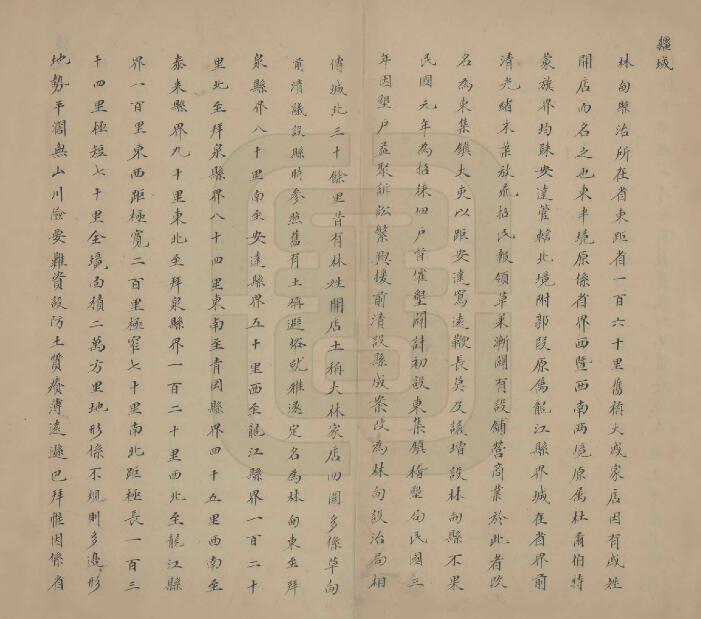 疆域
林甸縣治所在省東距省一百六十里舊稱大戚家店因有戚姓
開店而名之也東半境原係省界西暨西南兩境原屬杜爾伯特
蒙旗界均隸安達管轄北境附郭段原屬龍江縣界城在省界前
清光緒末葉放荒招民報領草萊漸闢有設舖營商業於此者改
名為東集鎮大吏以距安達窵遠鞭長莫及議增設林甸縣不果
民國元年為招徠佃戶督催墾闢計初設東集鎮稽墾局民國三
年因墾戶益聚訴訟繁興援前清設縣成案改為林甸設治局相
傳城北三十餘里昔有林姓開店土稱大林家店四圍多係草甸
前清議設縣時參照舊有土俗避俗就雅遂定名為林甸東至拜
泉縣界八十里南至安達縣界五十里西至龍江縣界一百二十
里北至拜泉縣界八十四里東南至青岡縣界四十五里西南至
泰來縣界九十里東北至拜泉縣界一百二十里西北至龍江縣
界一百里東西距極寬二百里極窄七十里南北距極長一百三
十四里極短七十里全境面積二萬方里地形係不規則多邊形
地勢平濶無山川險要難資設防土質瘠薄遠遜巴拜惟因係省